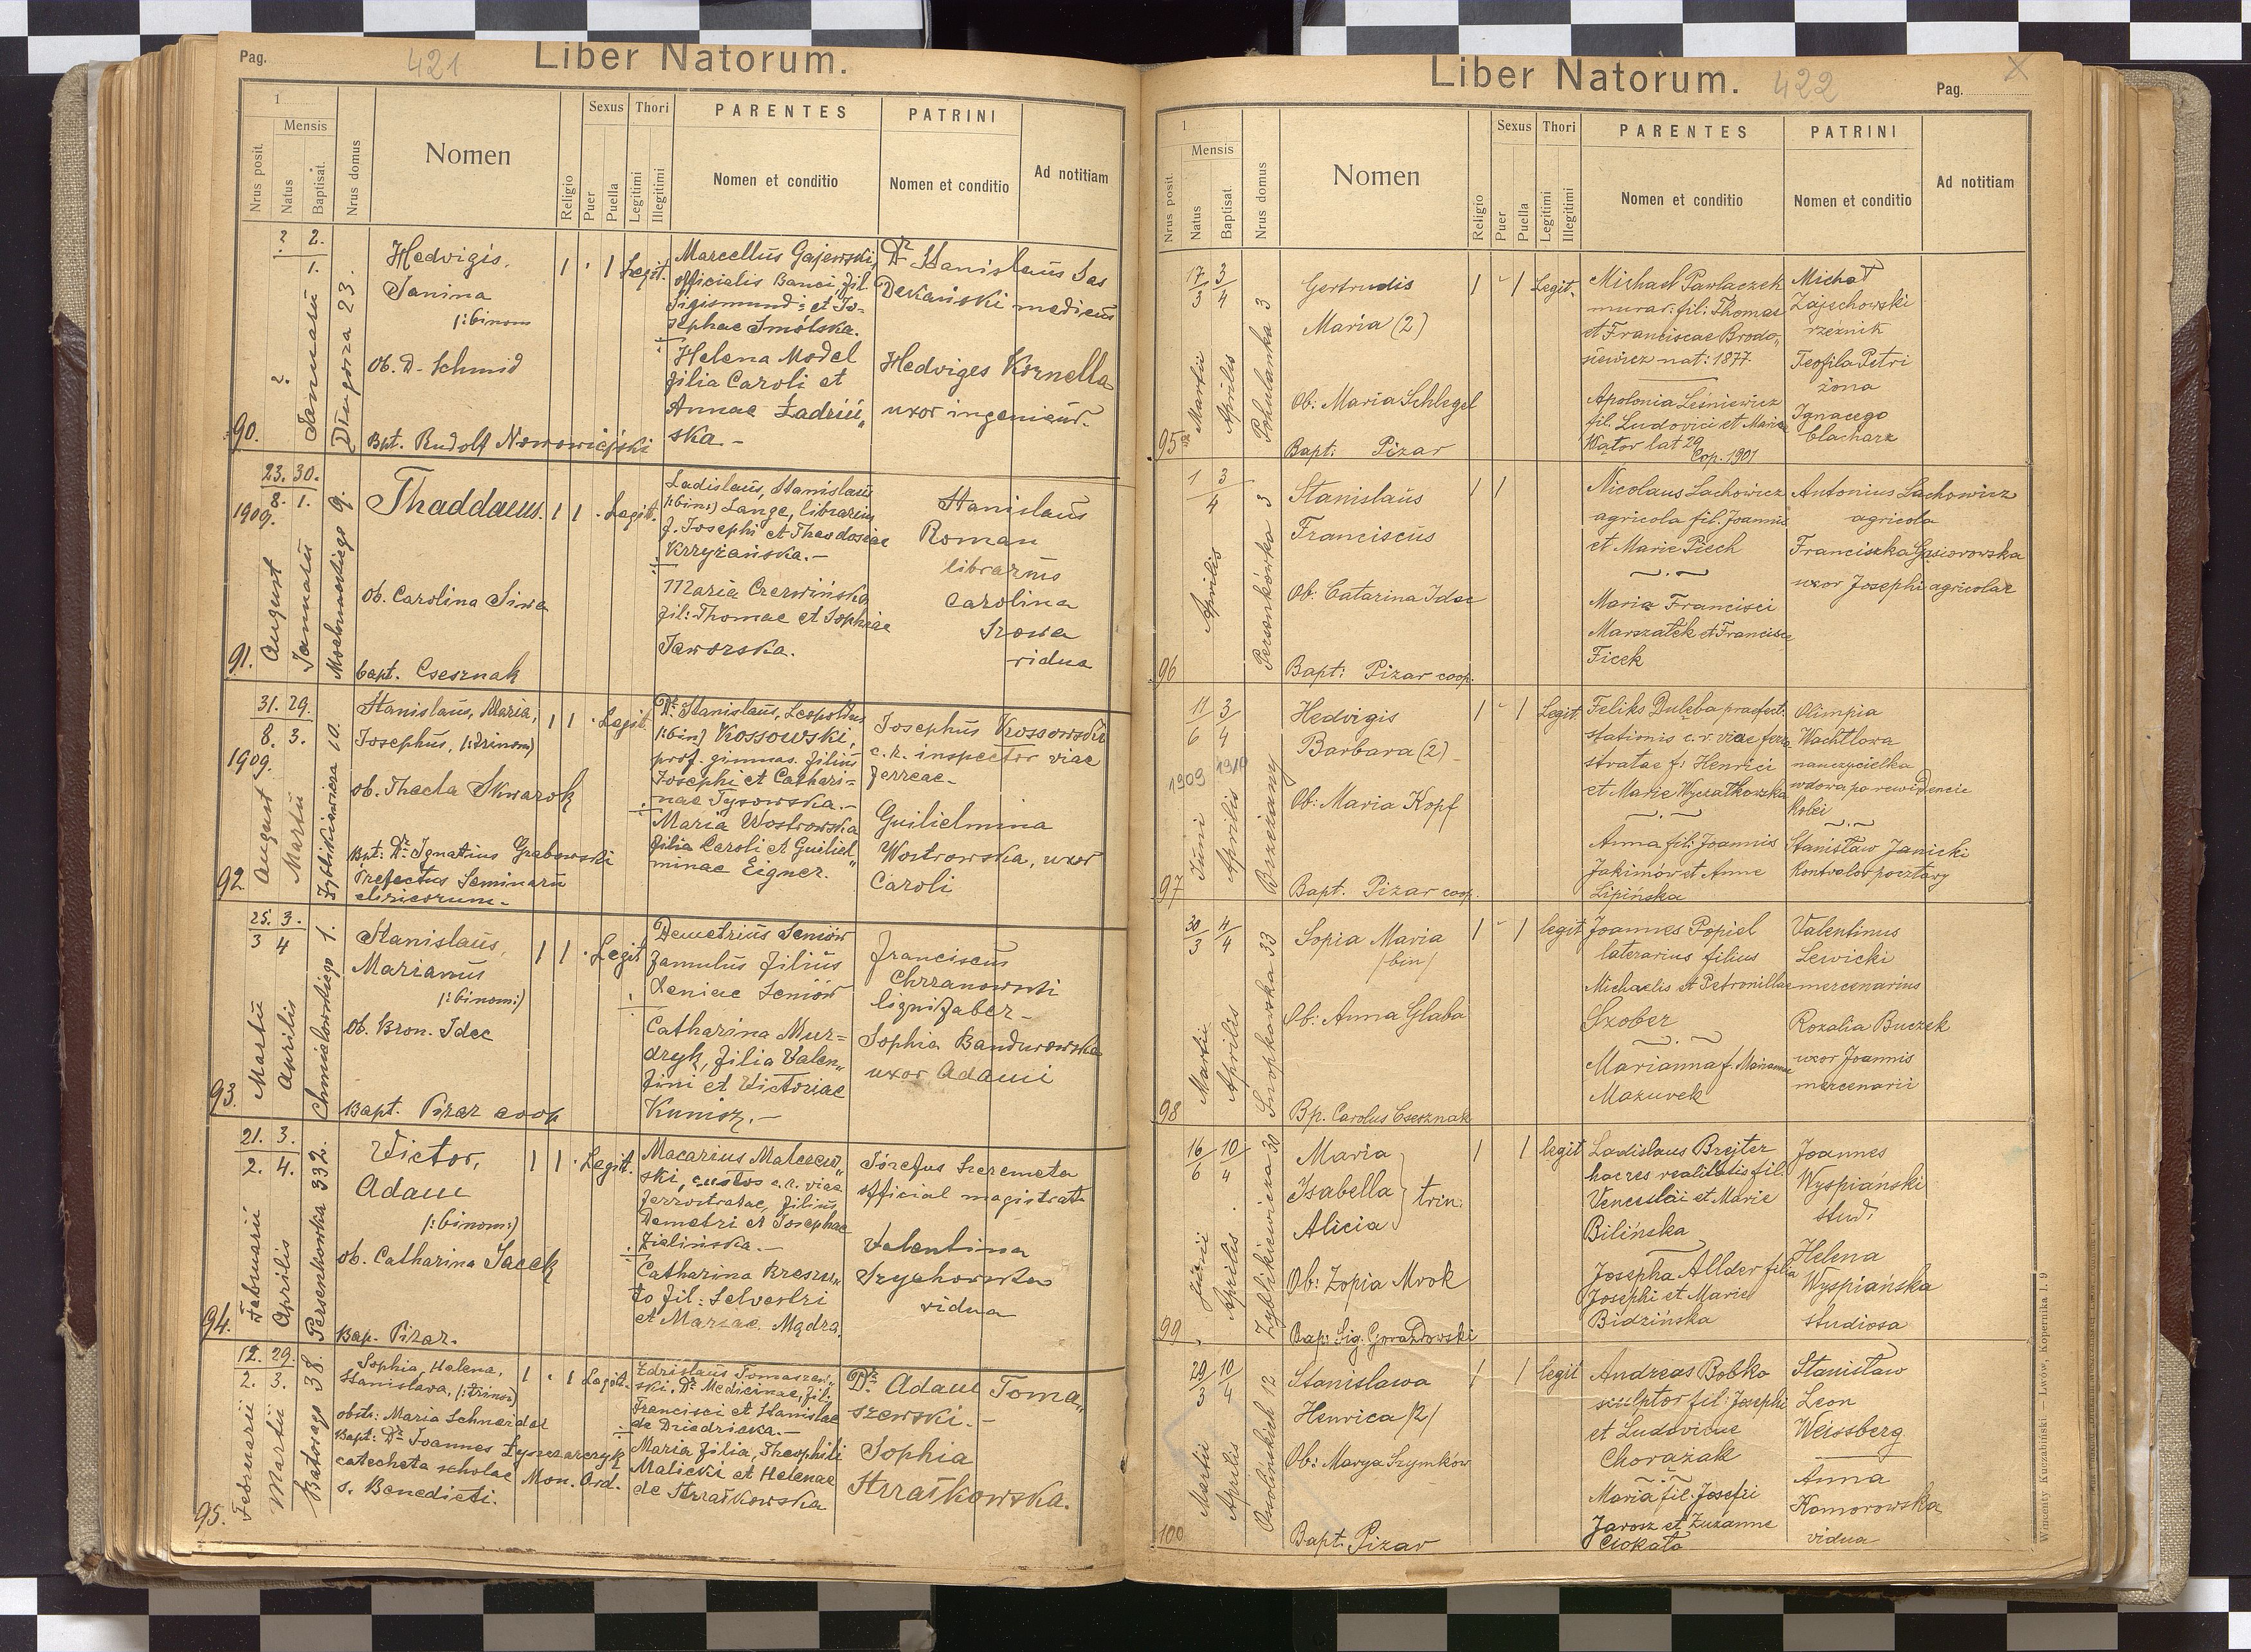 Pag.
421
Liber Natorum.
1
Mensis
Nrus posit.
Natus
Baptisat.
Nrus domus
Nomen
Religio
Sexus
Puer
Puella
Thori
Legitimi
Illegitimi
PARENTES
Nomen et conditio
PATRINI
Nomen et conditio
Ad notitiam
90.
2. 2.
2. 1.
Januarii
Długosza 23.
Hedvigis,
Janina
/:binom
Ob. D. Schmid
Bpt. Rudolf Nowowiejski
1 · 1 Legit.
Marcellus Gajewski,
officialis Banci, fil.
Sigismundi et Jo-
sephae Smólska.
Helena Model
filia Caroli et
Annae Ładziń„
ska -
Dr Stanislaus Sas
Dekański medicus
Hedviges Kornella
uxor ingenieur.
91.
23. 30.
8. 1.
1909.
August
Januarii
Mochnackiego 9.
Thaddaeus.
ob. Carolina Siwa
bapt. Csesznak
1 1 · Legit.
Ladislaus, Stanislaus
/:bin:) Lange, librarius
f. Josephi et Theodosiae
Krzyżańska. -
Maria Czerwińska
fil: Thomae et Sophiae
Jaworska.
Stanislaus
Roman
librarius
Carolina
vidua
92
31. 29.
8. 3.
1909.
August
Martii
Zyblikiewicza 10.
Stanislaus, Maria,
Josephus, (:trinom)
ob. Thecla Skwarok
Bpt: Dr. Ignatius Grabowski
Prefectus Seminarii
clericorum -
1 1 · Legit.
Dr. Stanislaus, Leopoldus
/:bin) Kossowski,
prof. gimnas. filius
Josephi et Cathari=
nae Tysowska. -
Maria Wostrowska
filia Caroli et Guiliel„
minae Eigner.
Josephus Kossowski
c. k. inspector viae
ferreae -
Guilielmina
Wostrowska, uxor
Caroli
93.
25. 3.
3 4
Martii
Aprilis
Chmielowskiego 1.
Stanislaus,
Marianus
/:binom:)
Ob. Bron. Idec
Bapt. Pizar coop
1 1 · Legit
Demetrius Seniów
famulus filius
Xeniae Seniów
Catharina Mur=
dryk, filia Valen„
tini et Victoriae
Kunisz. -
Franciscus
Chrzanowski
lignifaber -
Sophia Bandurowska
uxor Adami
94.
21. 3.
2. 4.
Februarii
Aprilis
Persenkówka 332.
Victor,
Adam
/:binom:)
ob. Catharina Jacek
Bap. Pizar.
1 1 · Legit.
Macarius Malczew„
ski, custos c. r. viae
ferrostratae, filius
Demetri et Josephae
Zielińska. -
Catharina Kreszu„
to fil: Selvestri
et Mariae Mądra.
Józefus Szeremeta
official magistrat
Valentina
Szychowska
vidua
95.
12. 29.
2. 3.
Februarii
Martii
Batorego 38.
Sophia, Helena,
Stanislava, (:trinom)
obst: Maria Schneider
Bapt: Dr. Joannes Łyszczarczyk
catecheta scholae Mon. Ord.
s. Benedicti.
1 · 1 Legit.
Zdzislaus Tomaszew„
ski, Dr. Medicinae, fil:
Francisci et Stanislae
de Driedzicka. -
Maria filia, Theophili
Malicki et Helenae
de Strzałkowska
Dr. Adam Toma„
szewski. -
Sophia
Strzałkowska.
Liber Natorum.
422
Pag.
X
1
Mensis
Nrus posit.
Natus
Baptisat.
Nrus domus
Nomen
Religio
Sexus
Puer
Puella
Thori
Legitimi
Illegitimi
PARENTES
Nomen et conditio
PATRINI
Nomen et conditio
Ad notitiam
95
17 3
3 4
Martii
Aprilis
Pohulanka 3
Gertrudis
Maria (2)
Ob: Maria Schlegel
Bapt: Pizar
1 - 1 Legit.
Michael Pawlaczek
murar: fil: Thomas
et Franciscae Brodo„
siewicz nat: 1877
Apolonia Leśniewicz
fil. Ludovici et Maria
Wator lat 29
Cop. 1901
Michał
Zajschowski
rzeźnik
Teofila Petri
żona
Ignacego
blacharz
96
1 3
4
Aprilis
Persenkówka 3
Stanislaus
Franciscus
Ob: Catarina Idec
Bapt: Pizar coop.
1 1
Nicolaus Lachowicz
agricola fil. Joannis
et Marie Piech
Maria Francisci
Marszałek et Francisce
Ficek
Antonius Lachowicz
agricola
Franciszka Gąsiorowska
uxor Josephi agricolae
97
11 3
6 4
1909 1910
Junii
Aprilis
Brzeżany
Hedvigis
Barbara (2) -
Ob: Maria Kopf
Bapt. Pizar coop.
1 - 1 Legit
Feliks Dulęba praefect:
stationis c. r. viae ferro
stratae f: Henrici
et Marie Wyczałkowska
Anna fil: Joannis
Jakimów et Anne
Lipińska
Olimpia
Wachtlowa
nauczycielka
wdowa po rewidencie
kolei
Stanisław Janicki
kontrolor pocztowy
98
30 4
3 4
Martii
Aprilis
Snopkowska 33
Sopia Maria
/bin/
Ob: Anna Glaba
Bp. Carolus Csesznak
1 - 1 legit
Joannes Popiel
laterarius filius
Michaelis et Petronillae
Szober
Marianna f. Marianne
Mazurek
Valentinus
Lewicki
mercenarius
Rozalia Buczek
uxor Joannis
mercenarii
99
16 10
6 4
Junii
Aprilis
Zyblikiewicza 30
Maria
Isabella } trin.
Alicia
Ob: Zopia Mrok
Bap: Sig. Gorazdowski
1 1 legit
Ladislaus Brejter
haeres realitatis fil.
Venceslai et Marie
Bilińska
Josepha Allder filia
Josephi et Marie
Bidzińska
Joannes
Wyspiański
stud.
Helena
Wyspiańska
studiosa
100
29 10
3 4
Martii
Aprilis
Ossolińskich 12
Stanislawa
Henrica /2/
Ob: Marya Szymków
Bapt. Pizar
1 1 legit
Andreas Bobko
sculptor fil: Josephi
et Ludovicae
Chorążak
Maria fil. Josefi
Jarosz et Zuzanne
Ciokato
Stanisław
Leon
Weissberg
Anna
Komorowska
vidua
Wincenty Kuczabiński. — Lwów, Kopernika l. 9